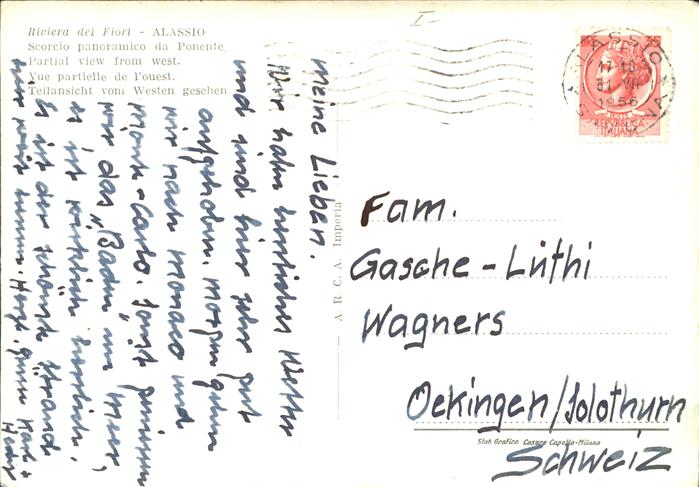 Riviera dei Fiori - ALASSIO
Scorcio panoramico da Ponente
Partial view from west.
Vue partielle de l'ouest.
Teilansicht vom Westen gesehen
meine Lieben.
Wir haben herrliches Wetter
und sind hier sehr gut
aufgehoben. morgen gehen
wir nach Monaco und
Monte-Carlo. Sonst geniessen
wir das "Baden im Meer",
es ist wirklich herrlich.
Es ist der schönste Strand
Herzl. Grüsse
A. R. C. A. Imperia
ALASSIO
31 VII
1956
REPVBBLICA
ITALIANA
Fam.
Gasche - Lüthi
Wagners
Oekingen/Solothurn
Schweiz
Stab Grafico Cesare Capello-Milano